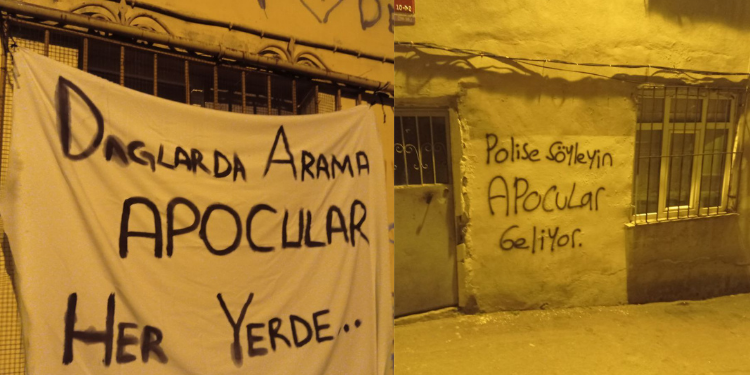 DAGLARDA ARAMA
APOCULAR
HER YERDE..
Polise Söyleyin
APOCULAR
Geliyor.